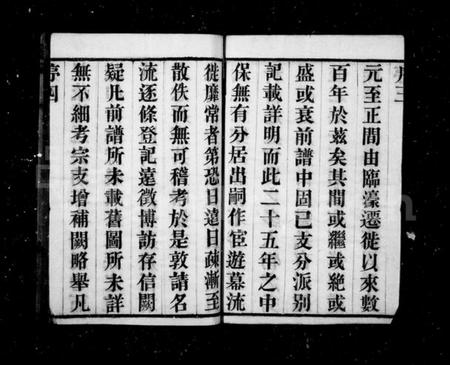 元至正間由臨濠遷徙以來數
百年於茲矣其間或繼或絕或
盛或衰前譜中固已支分派別
記載詳明而此二十五年之中
保無有分居出嗣作宦遊幕流
徙靡常者第恐日遠日疎漸至
散佚而無可稽考於是敦請名
流逐條登記遠徵博訪存信闕
疑凡前譜所未載舊圖所未詳
無不細考宗支增補闕略舉凡